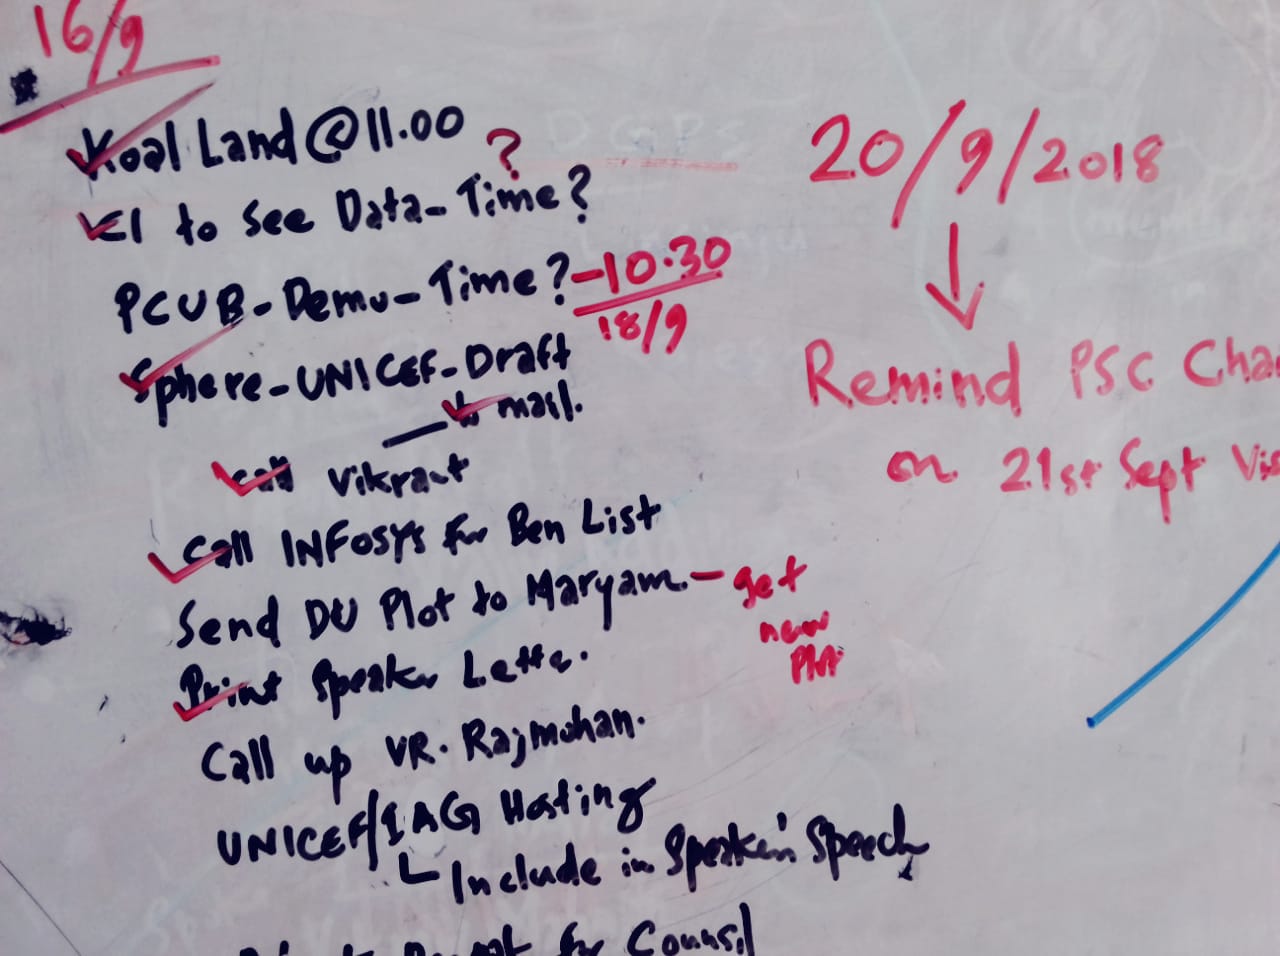 16/9
Koal Land @ 11.00
?
CI to See Data - Time?
PCUB - Demo - Time? - 10.30
18/9
Sphere - UNICEF - Draft
to mail.
Call Vikrant
Call INFOSYS for Ben List
Send DU Plot to Maryam. - get
new
Plot
Print Speaker Letter.
Call up VR. Rajmohan.
UNICEF/IAG Hosting
Include in Speaker's Speech
for Council
20/9/2018
Remind PSC Cha
on 21st Sept Vis
DGPS